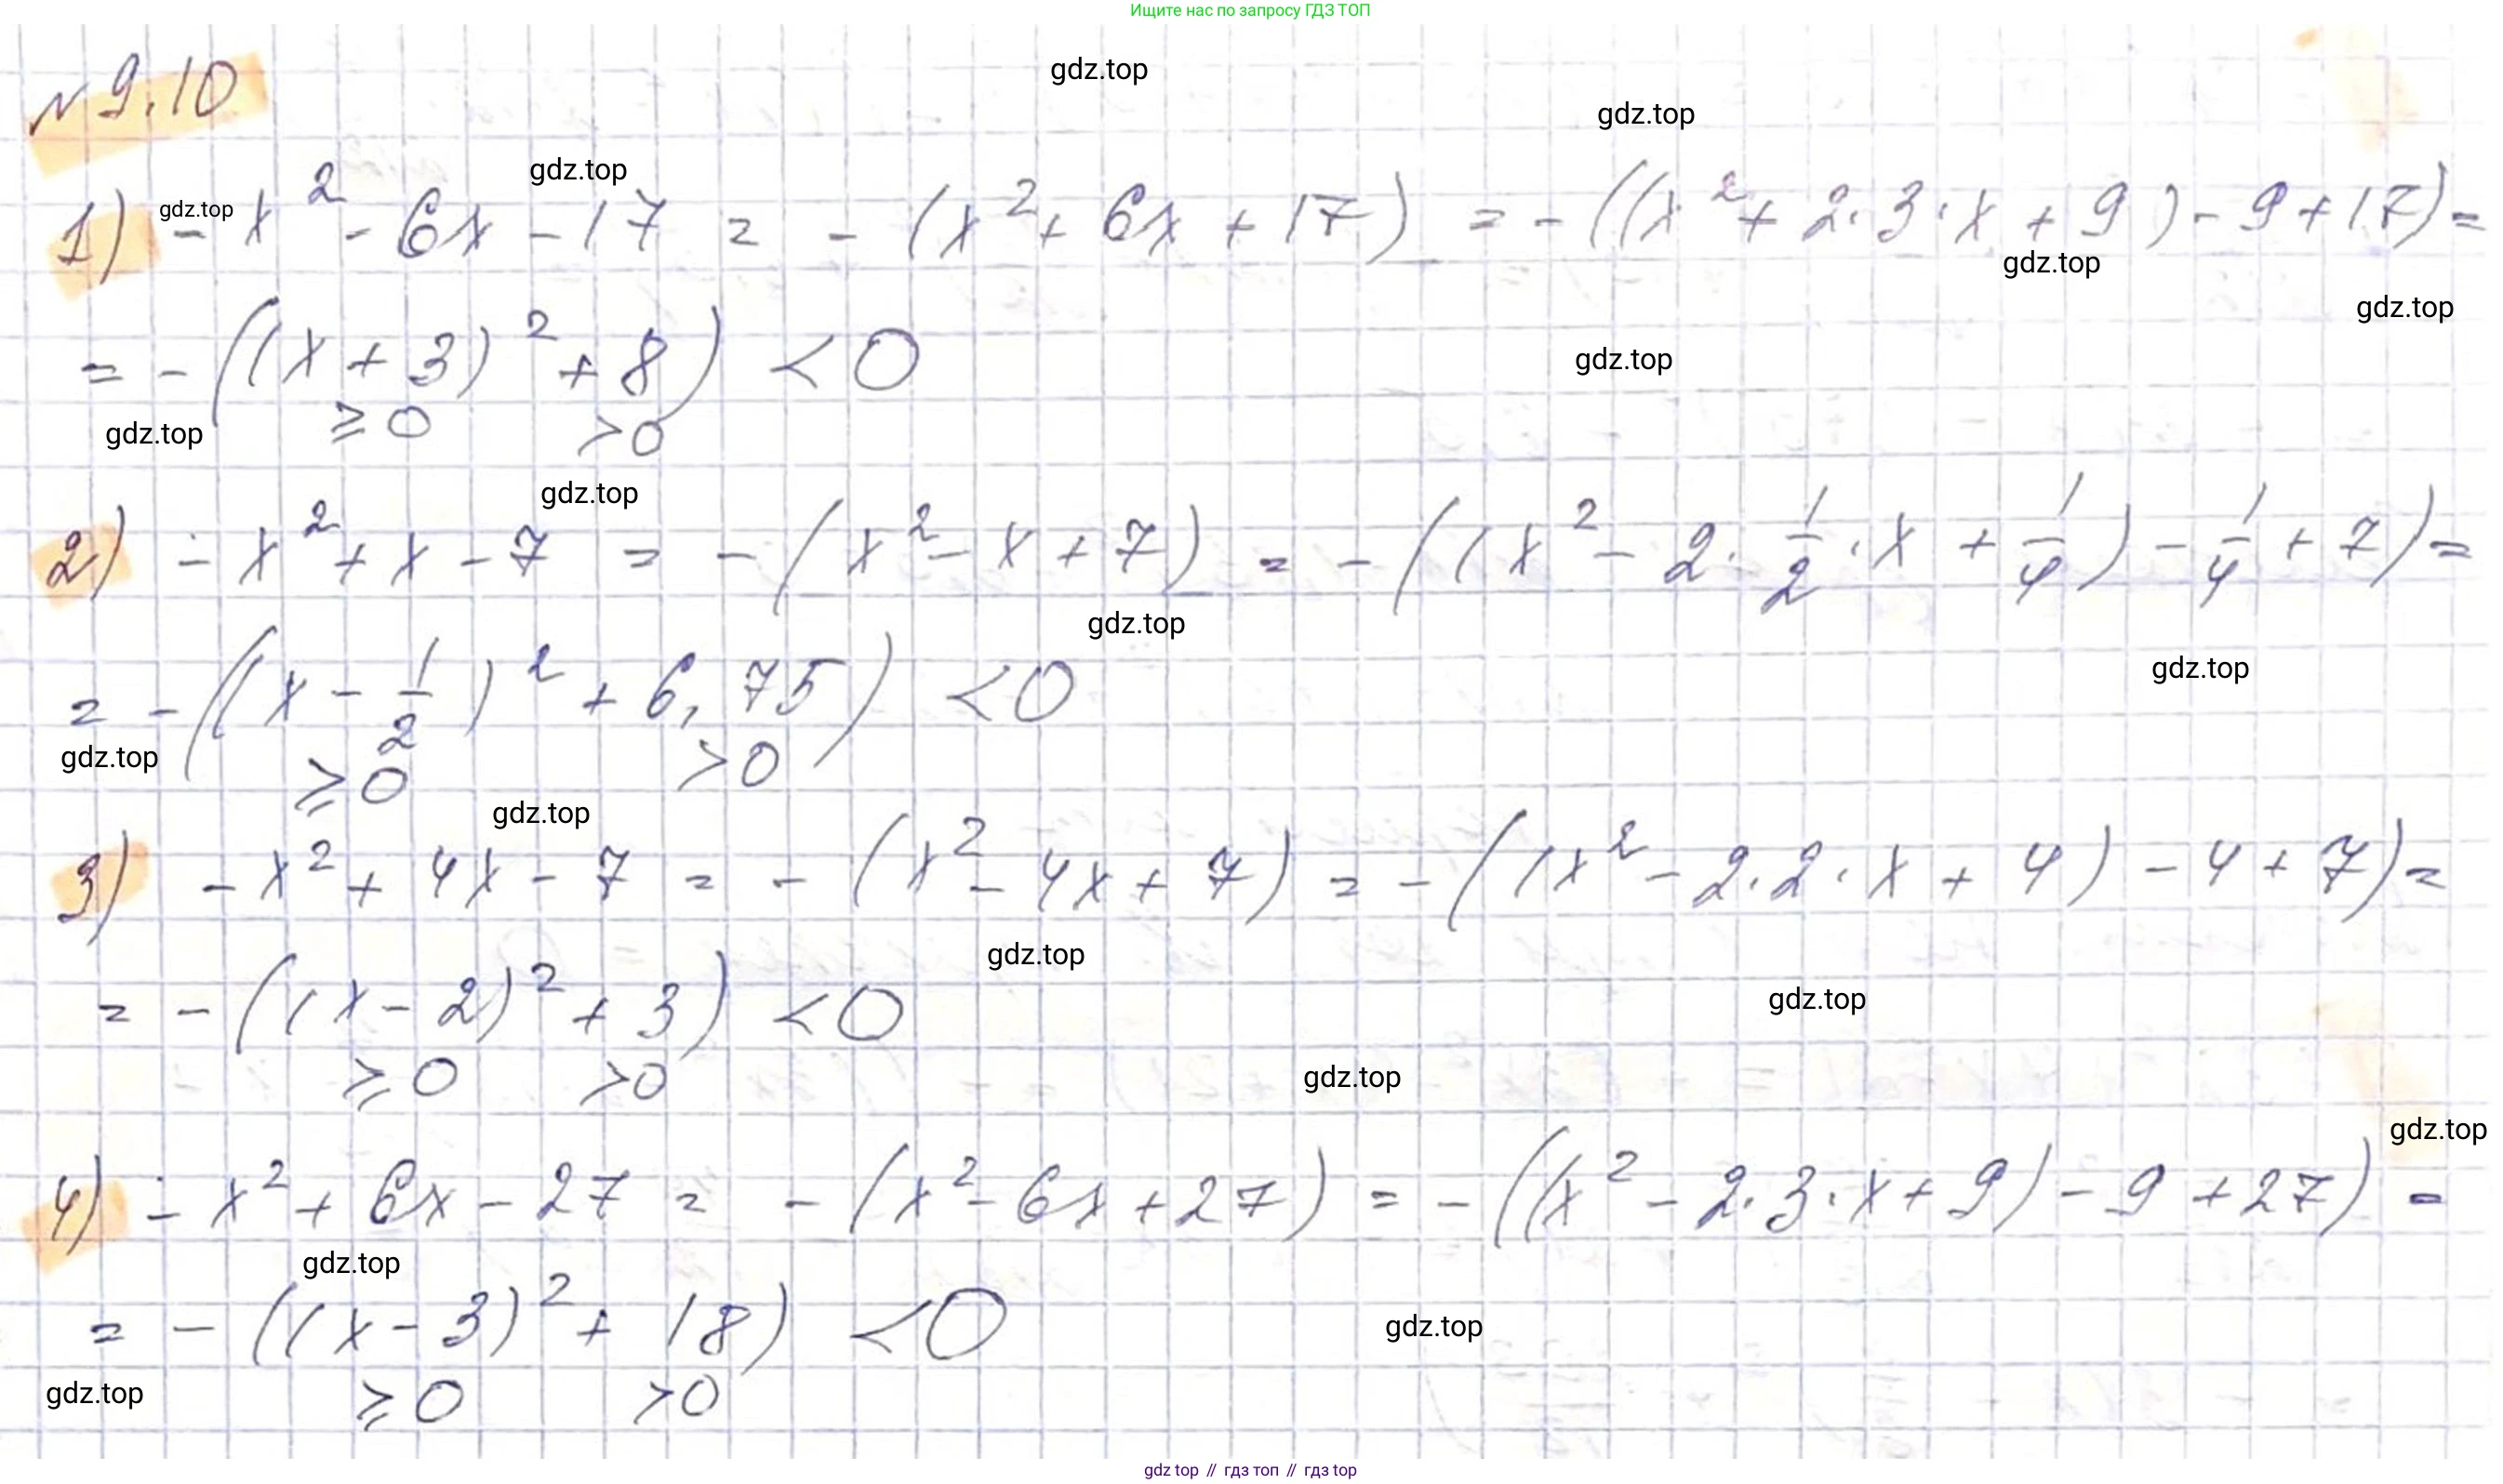 Ищите нас по запросу ГДЗ ТОП
gdz.top
gdz.top
№ 9.10
gdz.top
gdz.top
1) - x² - 6x - 17 = - (x² + 6x + 17) = - ((x² + 2·3·x + 9) - 9 + 17) =
gdz.top
gdz.top
= - ((x + 3)² + 8) < 0
gdz.top
≥ 0 > 0
gdz.top
gdz.top
2) - x² + x - 7 = - (x² - x + 7) = - ((x² - 2·1/2·x + 1/4) - 1/4 + 7) =
gdz.top
gdz.top
= - ((x - 1/2)² + 6,75) < 0
gdz.top
≥ 0 > 0
gdz.top
3) - x² + 4x - 7 = - (x² - 4x + 7) = - ((x² - 2·2·x + 4) - 4 + 7) =
gdz.top
gdz.top
= - ((x - 2)² + 3) < 0
≥ 0 > 0
gdz.top
gdz.top
4) - x² + 6x - 27 = - (x² - 6x + 27) = - ((x² - 2·3·x + 9) - 9 + 27) =
gdz.top
= - ((x - 3)² + 18) < 0
gdz.top
gdz.top
≥ 0 > 0
gdz top // гдз топ // гдз top